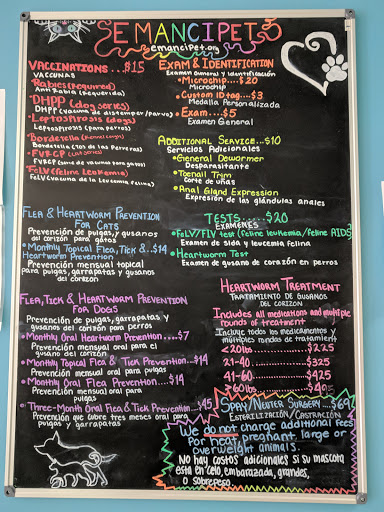 EMANCIPET
emancipet.org
VACCINATIONS...$15
VACCUNAS
Rabies (required)
Anti Rabia (Requerida)
DHPP (dog series)
DHPP (vacuna de distemper/parvo)
Leptospirosis (dogs)
Leptospirosis (para perros)
Bordetella
Bordetella (Tos de las Perreras)
FVRCP
FeLV (Feline Leukemia)
FeLV (Vacuna de la Leucemia Felina)
EXAM & IDENTIFICATION
Examen General y Identificación
•Microchip....$20
Microchip
•Custom ID tag....$3
Medalla Personalizada
•Exam....$5
Examen General
ADDITIONAL SERVICE...$10
Servicios Adicionales
•General Dewormer
Desparasitante
•Toenail Trim
Corte de uñas
•Anal Gland Expression
Expresión de las glándulas anales
TESTS......$20
EXAMENES
•FeLV/FIV test (feline leukemia/feline AIDS)
Examen de sida y leucemia felina
•Heartworm Test
Examen de gusano de corazón en perros
FLEA & HEARTWORM PREVENTION
FOR CATS
Prevención de pulgas, y gusanos
del corazón para gatos
•Monthly Topical Flea, Tick &..$14
Heartworm Prevention
Prevención mensual topical
para pulgas, garrapatas y gusanos
del corazon
FLEA, TICK & HEARTWORM PREVENTION
FOR DOGS
Prevención de pulgas, garrapatas y
gusanos del corazón para perros
•Monthly Oral Heartworm Prevention....$7
Prevención mensual oral para el
gusano del corazón
•Monthly Topical Flea & Tick Prevention...$14
Prevención mensual oral para pulgas
•Monthly Oral Flea Prevention....$14
Prevención mensual oral para
pulgas
•Three-Month Oral Flea & Tick Prevention....$45
Prevención que cubre tres meses oral para
pulgas y garrapatas
HEARTWORM TREATMENT
TRATAMIENTO DE GUSANOS
DEL CORAZON
Includes all medications and multiple
rounds of treatment
Incluye todos los medicamentos y
múltiples rondas de tratamiento
<20lb............$225
21-40............$325
41-60............$425
>60lb
SPAY/NEUTER SURGERY...$69
ESTERILIZACIÓN/CASTRACIÓN
We do not charge additional fees
for heat, pregnant, large or
overweight animals.
No hay costos adicionales si su mascota
esta en celo, embarazada, grandes,
o sobrepeso.